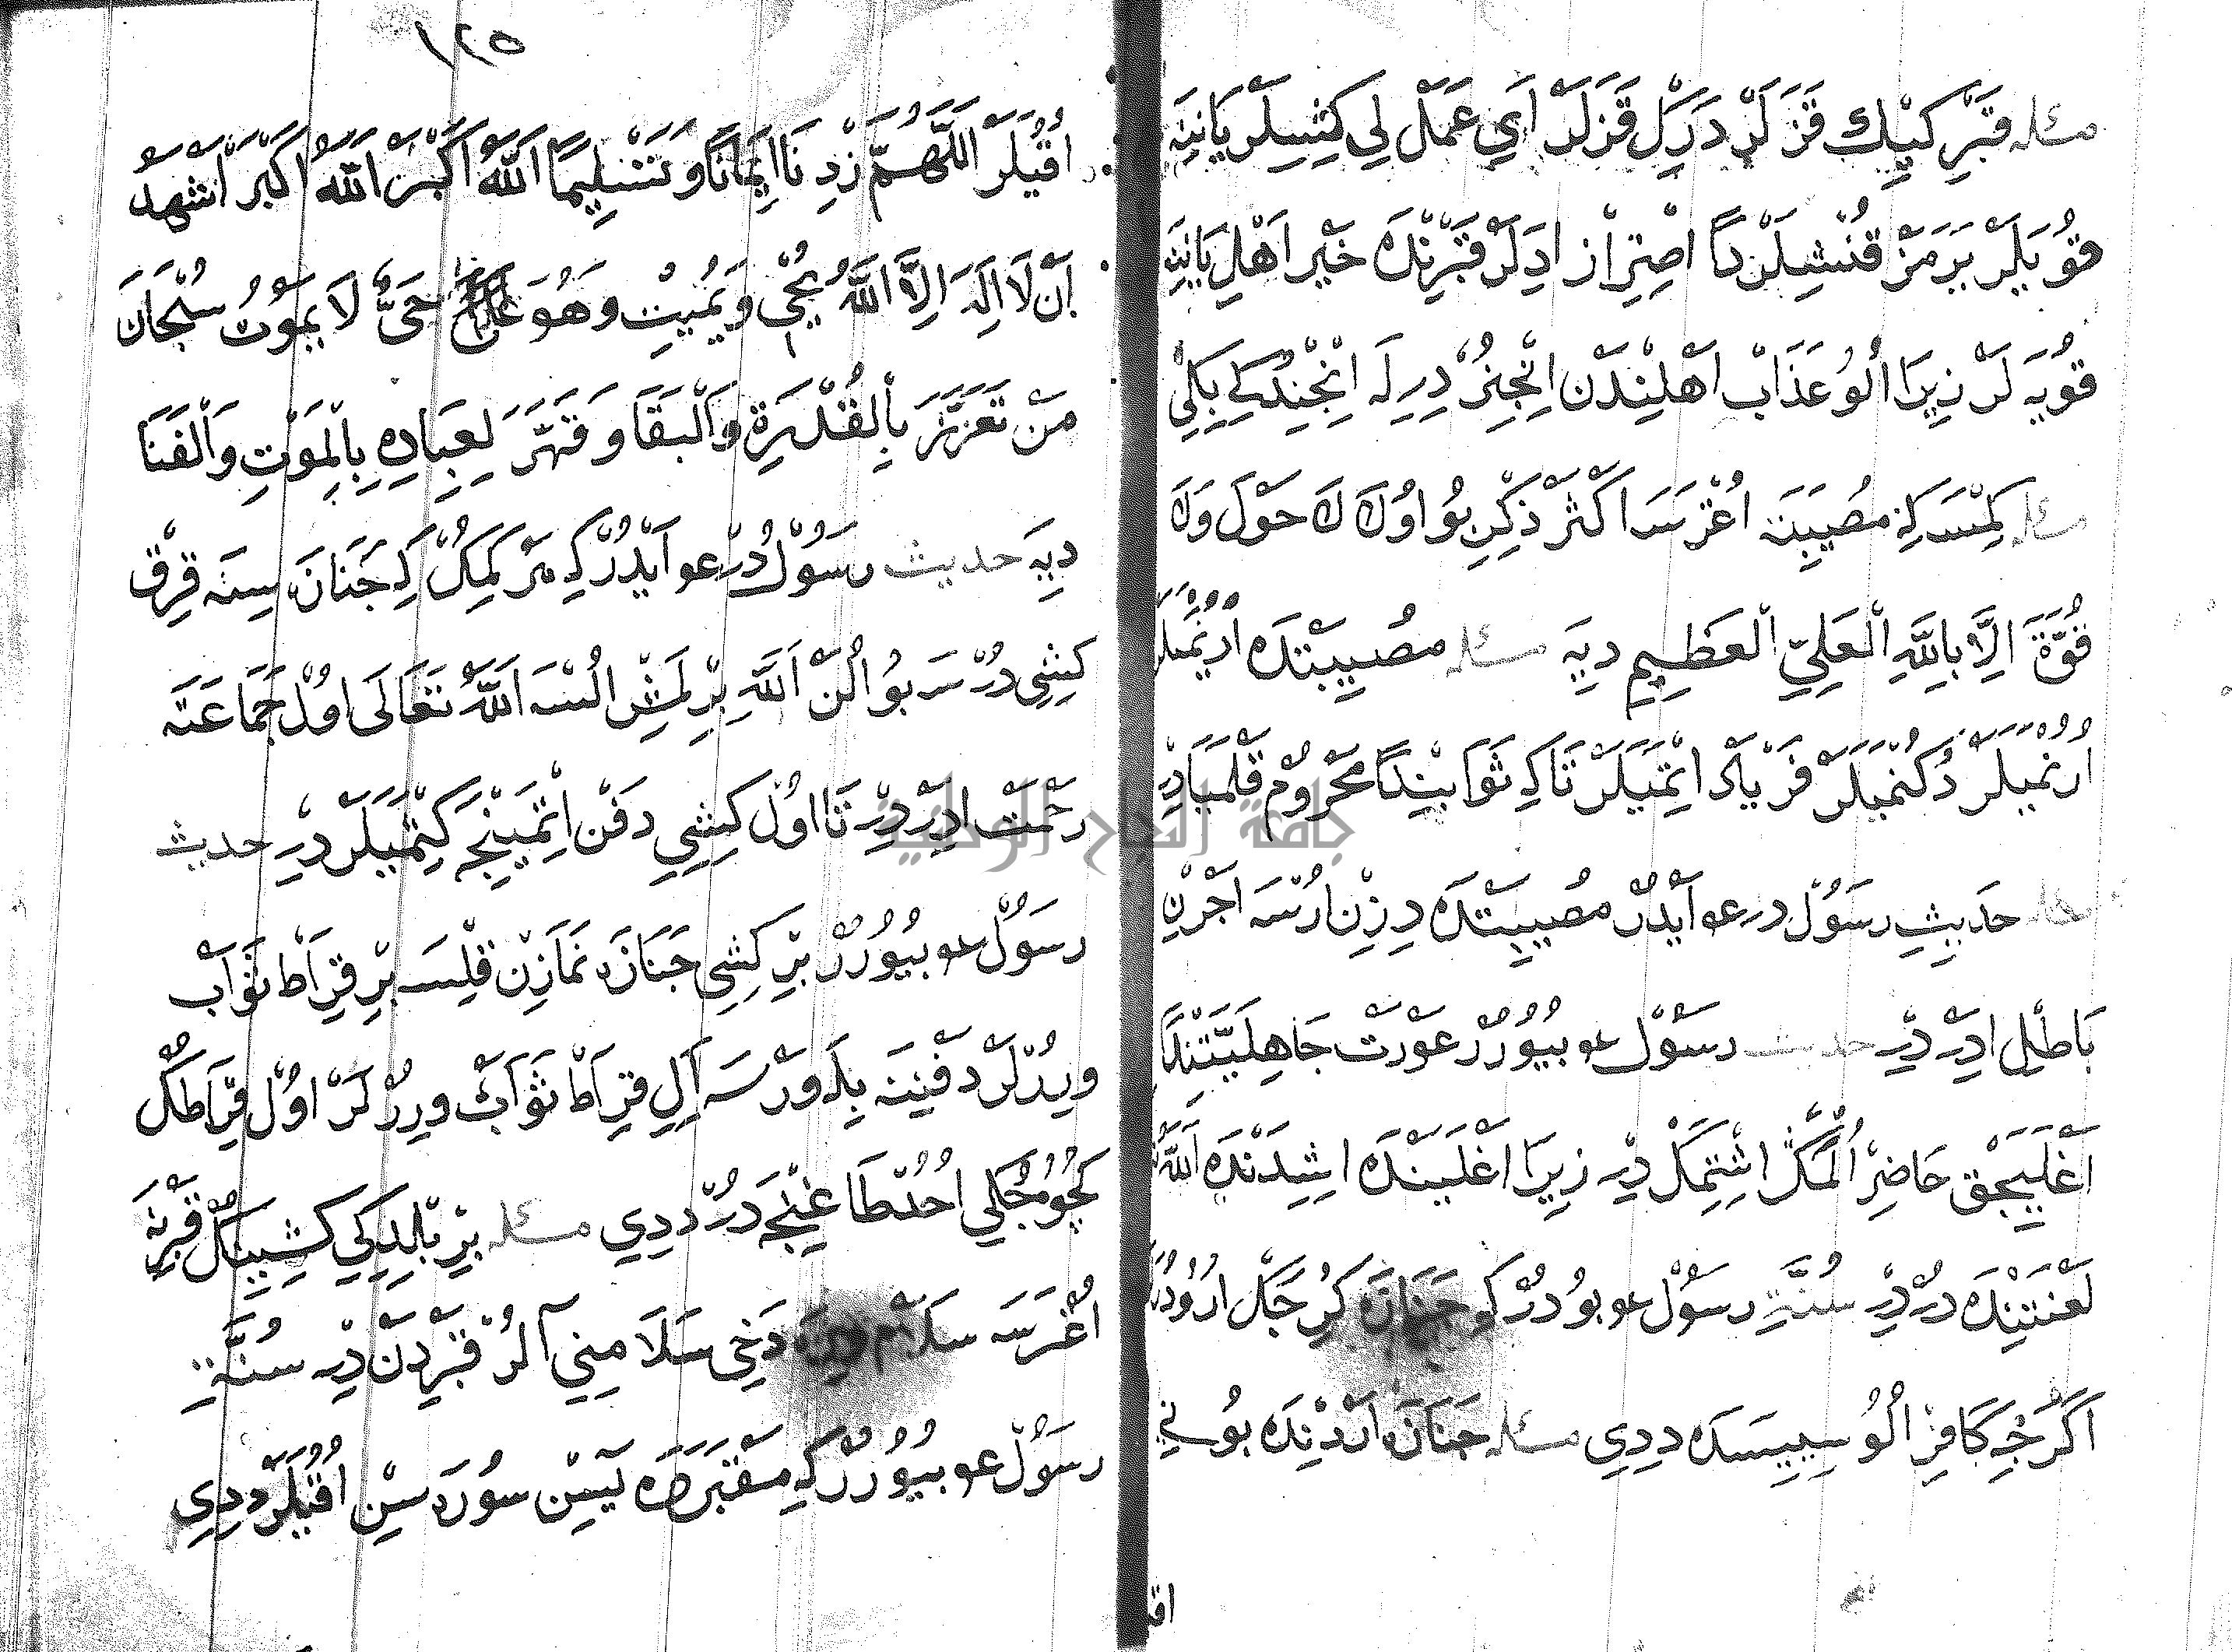 مسئله قَبْرِ كَيِيكْ قَزَلَرْ دَرِلْ قَزَلَرْ اَيِ عَمَلْ لِي كِشِيلَرْ يَانِنَه
قُويَلَرْ يَرَمَزْ قُنْشِلَرْدَا اِصْتِرَازْ ادَلَرْ قَبْرِنْدَه خَيْر اَهْلِ يَانِنَه
قُويَه لَرْ زِيرَا اُلُو عَذَابْ اَهْلِنْدَنْ اِنْجِنُرْ دِرِلَه اِنْجِنْدُكِ بِكِلِي
مسئله كِمْسَه كِه مُصِيبَتَه اُغْرَسَه اكْثَرْ ذِكْرِ بُو اوُلَه لَا حَوْلَ وَلَا
قُوَّةَ اِلَّا بِاللَّهِ الْعَلِيِّ الْعَظِيمِ دِيَه مسئله مُصِيبَتْدَه اُرْنَمَيَلَرْ
اُرُنْمَيَلَرْ دُكُنْمَيَلَرْ فَرْيَادْ اِتْمَيَلَرْ تَاكِه ثَوَابِنْدَا مَحْرُومْ قَلْمَيَادِرْ
حَدِيثِ رسَوُلْ در عو اَيْدُرْ مُصِيبَتْدَه دِزِنْ اُرْسَه اَجْرِنْ
بَاطِلِ ادَرْ دِرْ حديث رسَوُلْ عو بُيُورُرْ عَوْرَتْ جَاهِلِيَّتِنْدَا
اَغْلَيِجَقْ حَاضِرْ اُلْمَكْ اِشِتْمَكْ دِرْ زِيرَا اَغْلَيَنْدَه اِشِدَنْدَه اَللّٰهُ
لَعْنَتِنْدَه دُرْ دِرْ سُنَّةِ رسَوُلْ عو بُودُرْ كُو جَنَازَه كُرِجَكْ اُرُو دُرَ
اَكَرْجِه كَافِرْ اُلُوسِييسَدَه دِدِي مسئله جَنَازَه اَرْدِنْدَه بُونِي
اق
١٢٥
اُقُيَلَرْ اَللَّهُمَّ زِدْنَا اِيمَانًا وَتَسْلِيمًا اَللّٰهُ اَكْبَرْ اَللّٰهُ اَكْبَرْ اَشْهَدُ
اَنْ لَا اِلَهَ اِلَّا اللَّهُ يُحْيِ وَيُمِيتْ وَهُوَ حَيٌّ لَا يَمُوتُ سُبْحَانَ
مَنْ تَعَزَّزَ بِالْقُدْرَةِ وَالْبَقَا وَقَهَّرَ لِعِبَادِهِ بِالْمَوْتِ وَالْفَنَا
دِيَه حديث رسَوُلْ دُرْ عو اَيْدُرْ كِه هَرْ كِمِكْ كِه جَنَازَه سِنَه قِرِقْ
كِشِي دُرْسَه بُو اُلَنْ اَللّٰهِ بِرْلَمِشْ اُلْسَه اَللّٰهُ تَعَالَى اوُلْ جَمَاعَتَه
رَحْمَتْ ادَرْ دِرْ تَا اوُلْ كِشِي دَفَنْ اِتْمَيِنْجَه كِتْمَيَلَرْ دِرْ حديث
رسَوُلْ عو بُيُورُرْ بِرْ كِشِي جَنَازَه نَمَازِنْ قِلْسَه بِرْ قِرَاطْ ثَوَابْ
وِيرُرْلَرْ دَفْنِنَه بِلَه وَرْسَه اَلِي قِرَاطْ ثَوَابْ وِرُرْلَرْ اوُلْ قِرَاطَكْ
كُچُوجُكِي اُحُدْ طَاغِنْجَه دُرْ دِدِي مسئله بِرْ بِلْدِكِي كِشِينِكْ قَبْرِنَه
اُغْرَسَه سَلَامْ وِرَه دَخِي سَلَامِنِي اَلُرْ قَبْرِدَنْ دِرْ سُنَّةِ
رسَوُلْ عو بُيُورُرْ كِه مَقْبَرَه دَه يَسِنْ سُورَه سِنْ اُقُيَلَرْ دِدِي
جامعة الملك الوطنية